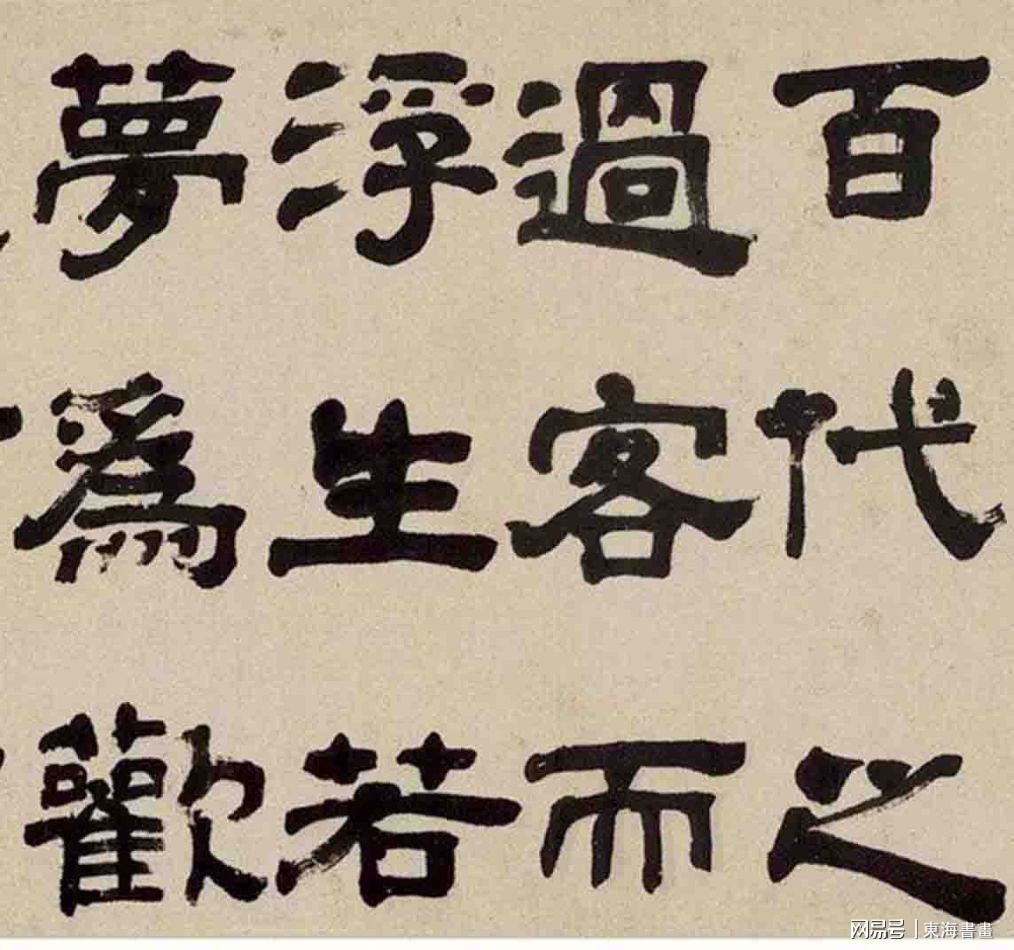 百代之
過客而
浮生若
夢為歡
网易号 | 東海書畫